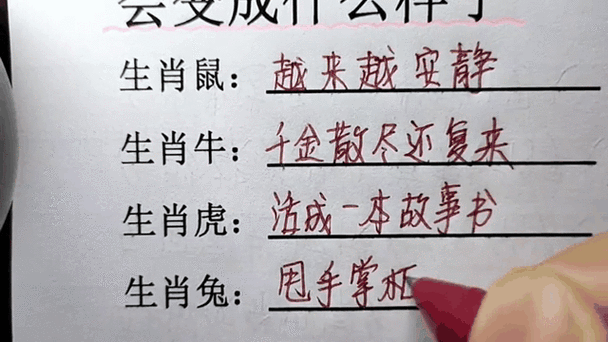 会变成什么样子
生肖鼠：越来越安静
生肖牛：千金散尽还复来
生肖虎：活成一本故事书
生肖兔：甩手掌柜